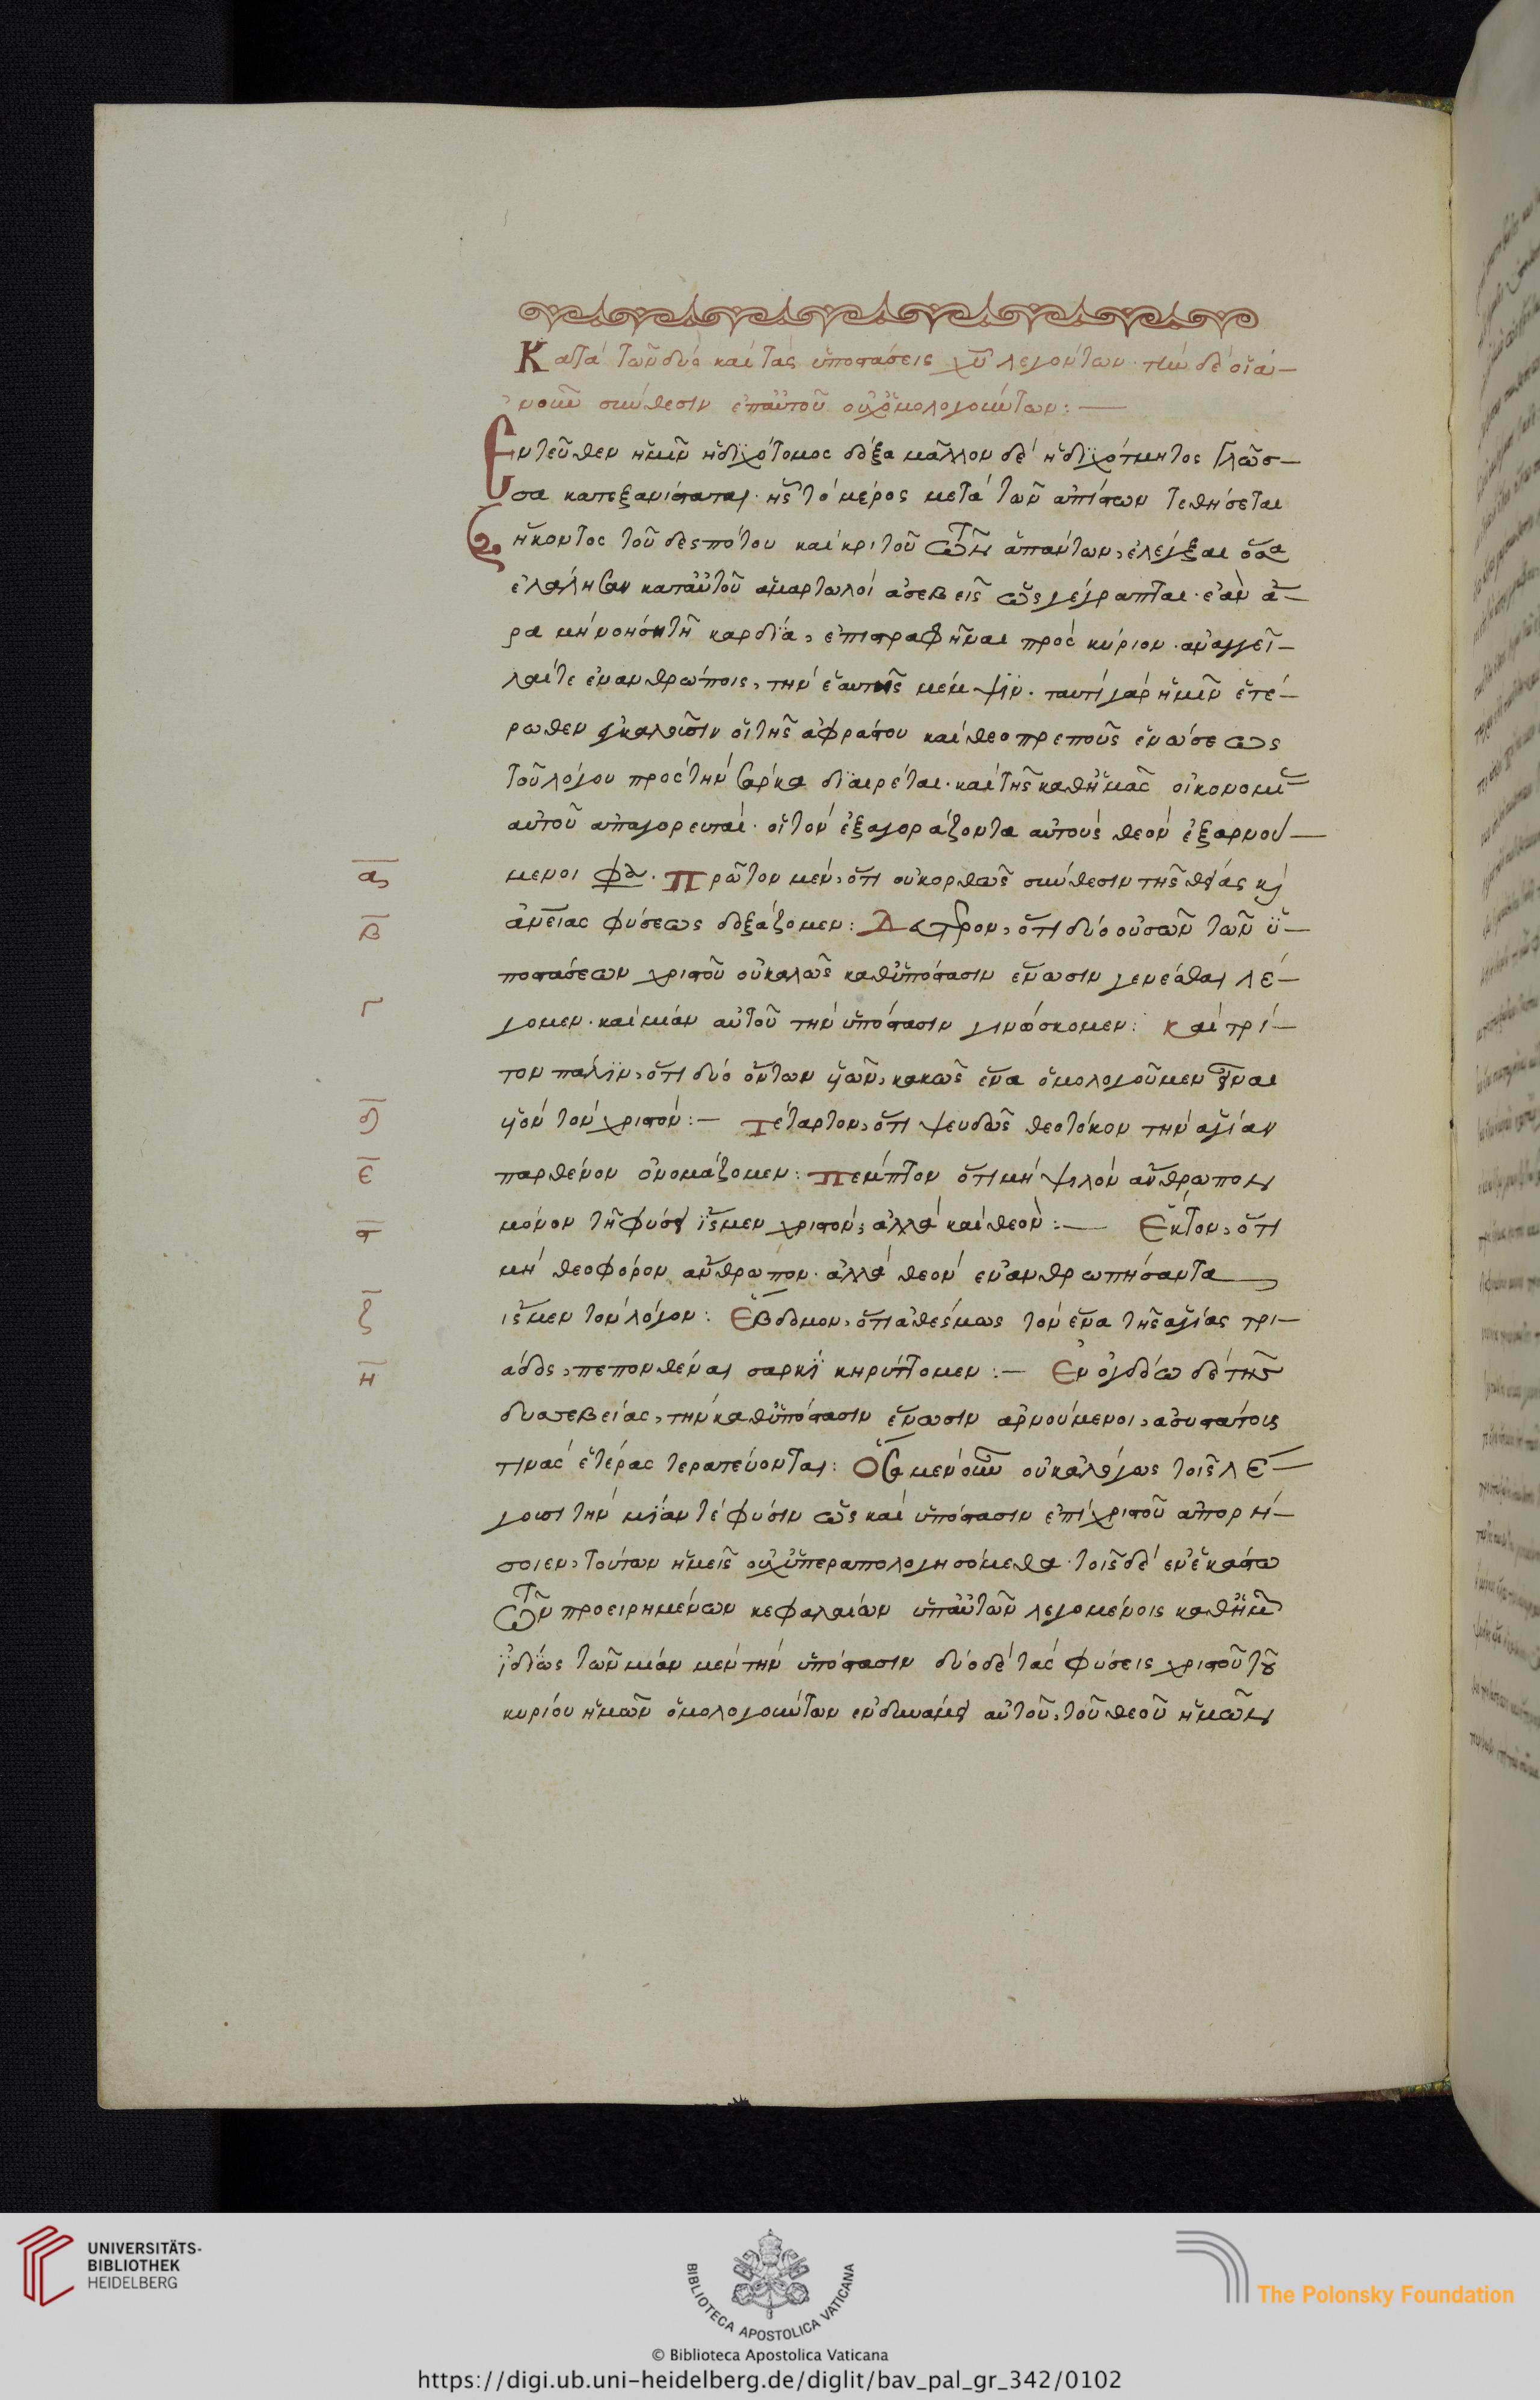 Κατὰ τῶν δύο καὶ τὰς ὑποστάσεις χῦ λεγόντων· τὴν δὲ οἱαν-
οῦν σύνθεσιν ἐπαὐτοῦ οὐχὁμολογούντων:—
Εντεῦθεν ἡμῖν ἡ διχότομος δόξα μᾶλλον δὲ ἡ διχότμητος γλῶσ-
σα κατεξανίσταται· ἧς τὸ μέρος μετὰ τῶν ἀπίστων τεθήσεται
ἥκοντος τοῦ δεσπότου καὶ κριτοῦ τῶν ἁπάντων, ἐλέγξαι ὅσα
ἐλάλησαν καταὐτοῦ ἁμαρτωλοὶ ἀσεβεῖς ὡς γέγραπται· ἐὰν ἄ-
ρα μὴ νοήση τῆ καρδία, ἐπιστραφῆναι πρὸς κύριον· ἀναγγεῖ-
λαί τε ἐν ἀνθρώποις, τὴν ἑαυτῆς μέμψιν· ταυτὶ γὰρ ἡμῖν ἑτέ-
ρωθεν ἐγκαλοῦσιν οἱ τῆς ἀφράστου καὶ θεοπρεποῦς ἑνώσεως
τοῦ λόγου πρὸς τὴν σάρκα διαιρέται· καὶ τῆς καθἡμᾶς οἰκονομί
αὐτοῦ ἀπαγορευταί· οἱ τὸν ἐξαγοράζοντα αὐτοὺς θεὸν ἐξαρνού-
α
μενοι φα. Πρῶτον μέν, ὅτι οὐκ ὀρθῶς σύνθεσιν τῆς θείας κ
β
ἀνείας φύσεως δοξάζομεν: Δεύτερον, ὅτι δύο οὐσῶν τῶν ὑ-
ποστάσεων χριστοῦ οὐ καλῶς καθὑπόστασιν ἕνωσιν γενέσθαι λέ-
γ
γομεν· καὶ μίαν αὐτοῦ τὴν ὑπόστασιν γινώσκομεν: καὶ τρί-
τον πάλιν, ὅτι δύο ὄντων υἱῶν, κακῶς ἕνα ὁμολογοῦμεν εἶναι
δ
υἱὸν τὸν χριστόν:— Τέταρτον, ὅτι ψευδῶς θεοτόκον τὴν ἁγίαν
ε
παρθένον ὀνομάζομεν: Πέμπτον ὅτι μὴ ψιλὸν ἄνθρωπον
ϛ
μόνον τῆ φύσει ἴσμεν χριστόν, ἀλλὰ καὶ θεόν:— Εκτον, ὅτι
μὴ θεοφόρον ἄνθρωπον· ἀλλὰ θεὸν ἐνανθρωπήσαντα
ζ
ἴσμεν τὸν λόγον: Εβδομον, ὅτι ἀθέσμως τὸν ἕνα τῆς ἁγίας τρι-
η
άδος, πεπονθέναι σαρκὶ κηρύττομεν:— Εν ὀγδόω δὲ τῆς
δυσσεβείας, τὴν καθὑπόστασιν ἕνωσιν ἀρνούμενοι, ἀσυστάτους
τινὰς ἑτέρας τερατεύονται: Οσα μὲν οὖν οὐκ ἀλόγως τοῖς λέ-
γουσι τὴν μίαν τὲ φύσιν ὡς καὶ ὑπόστασιν ἐπὶ χριστοῦ ἀπορή-
σοιεν, τούτων ἡμεῖς οὐχὑπεραπολογησόμεθα· τοῖς δὲ ἐν ἑκάστω
τῶν προειρημένων κεφαλαίων ὑπαὐτῶν λεγομένοις καθἡμ
ἰδίως τῶν μίαν μὲν τὴν ὑπόστασιν δύο δὲ τὰς φύσεις χριστοῦ τοῦ
κυρίου ἡμῶν ὁμολογούντων ἐν δυνάμει αὐτοῦ, τοῦ θεοῦ ἡμῶν
UNIVERSITÄTS-
BIBLIOTHEK
HEIDELBERG
BIBLIOTECA APOSTOLICA VATICANA
The Polonsky Foundation
© Biblioteca Apostolica Vaticana
https://digi.ub.uni-heidelberg.de/diglit/bav_pal_gr_342/0102